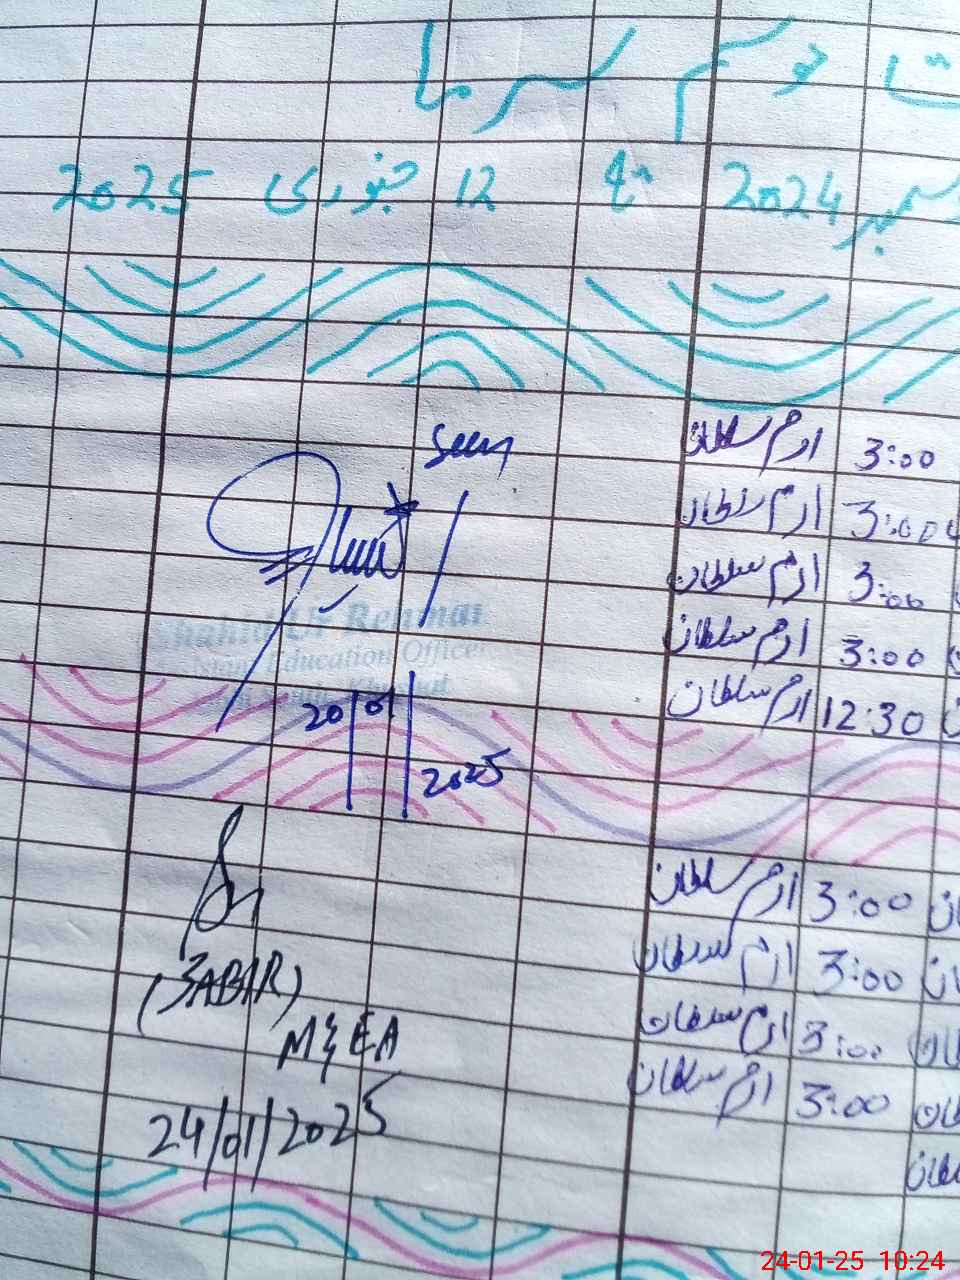 موسم سرما
دسمبر 2024 تا 12 جنوری 2025
Seen
3:00 ارم سلطان
3:00 ارم سلطان
3:00 ارم سلطان
Shahid Ur Rehman
3:00 ارم سلطان
Education Officer
12:30 ارم سلطان
20/01/2025
3:00 ارم سلطان
3:00 ارم سلطان
(SABIR)
3:00 ارم سلطان
M&EA
3:00 ارم سلطان
24/01/2025
24-01-25 10:24